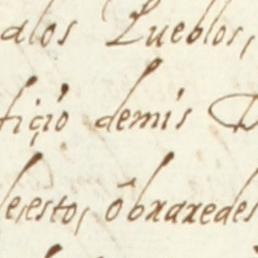 alos Pueblos,
fiçio demis D
deesto, obraredes